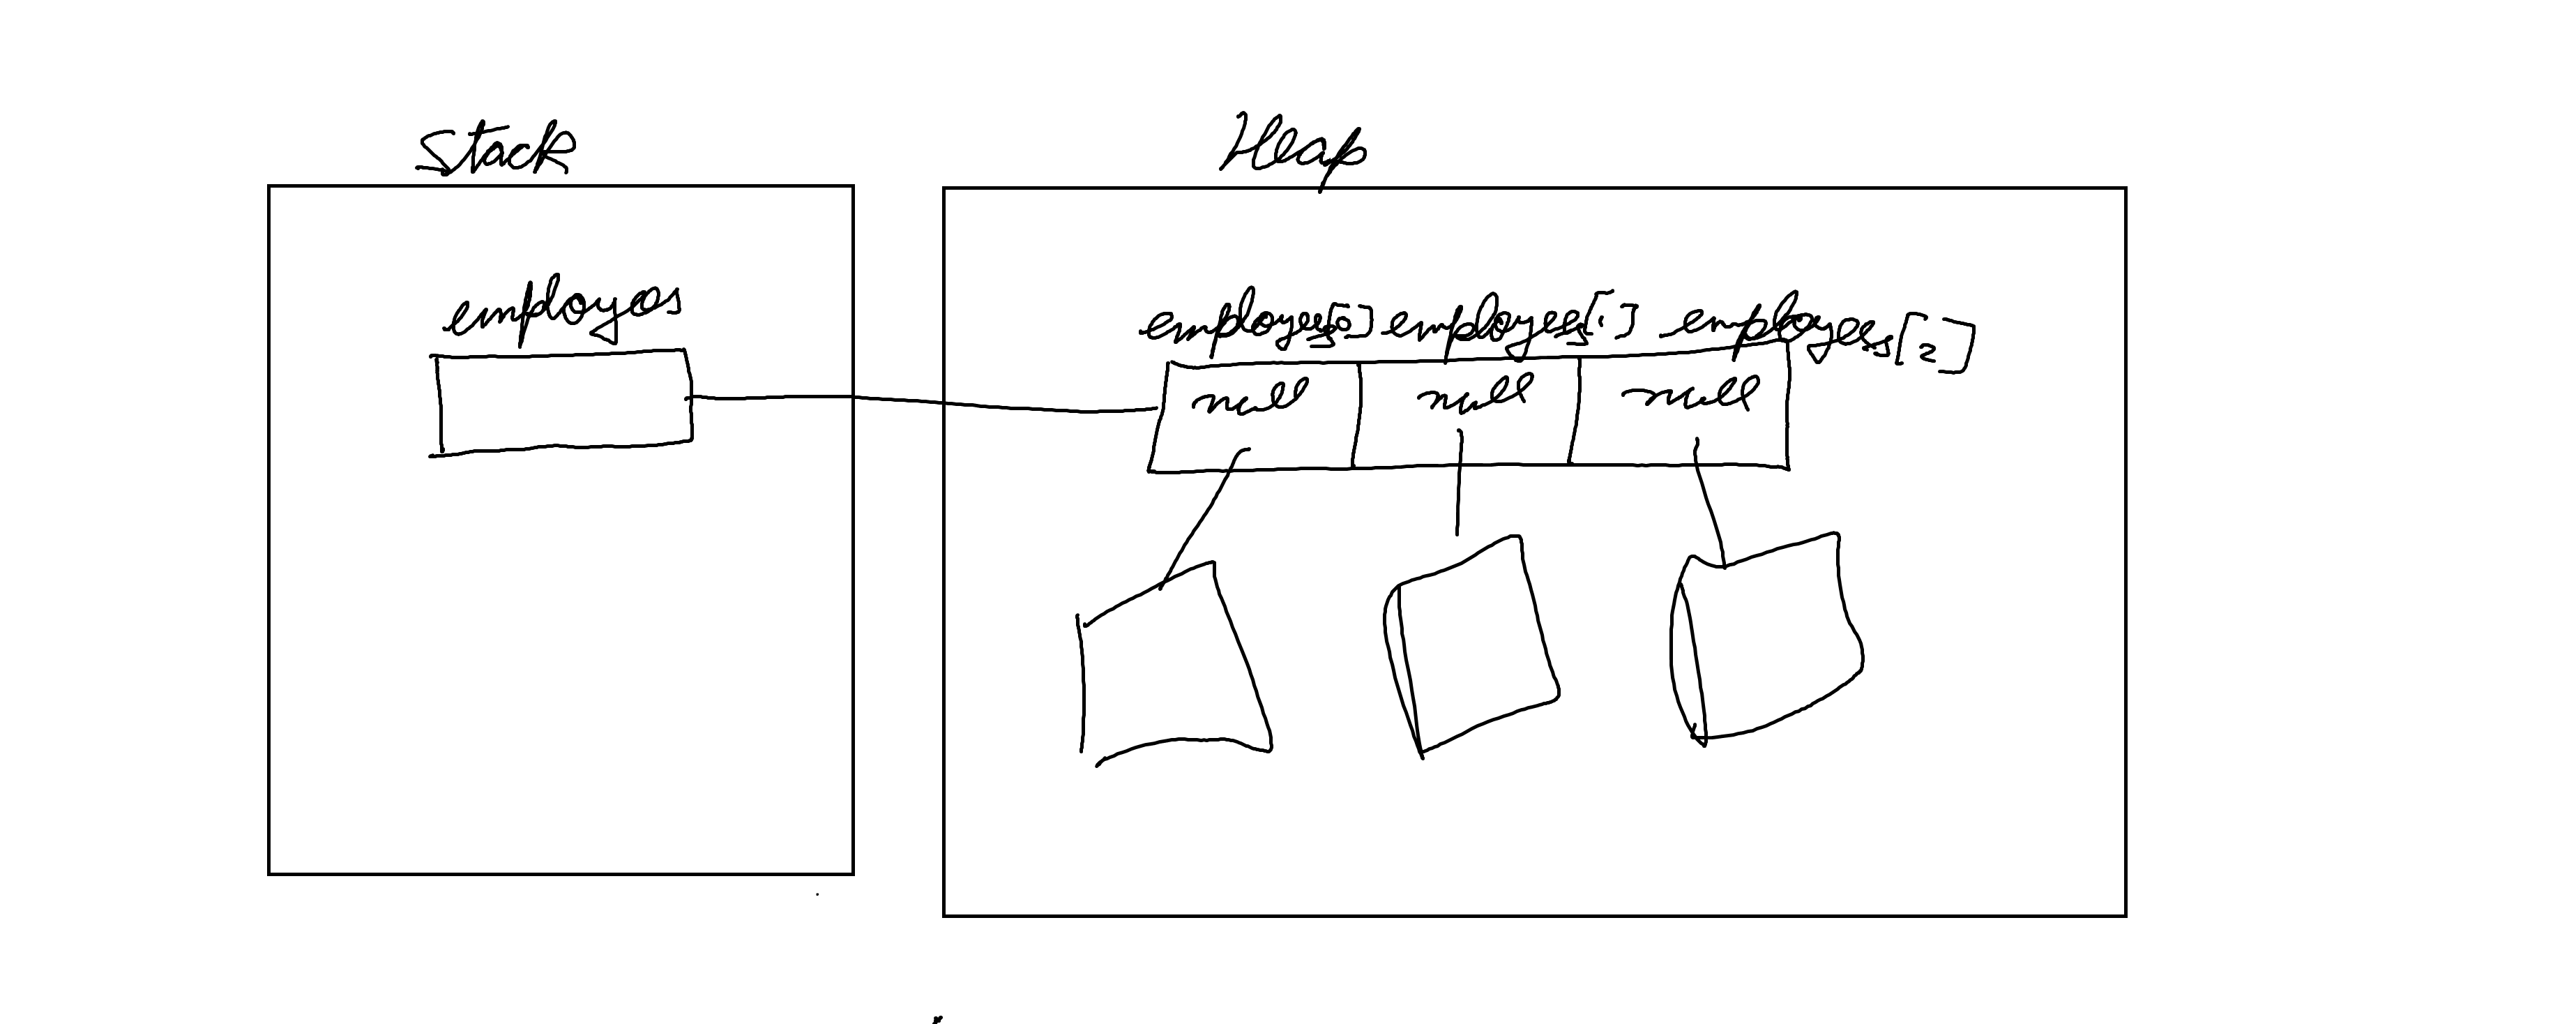 Stack
Heap
employees
employees[0] employees[1] employees[2]
null null null